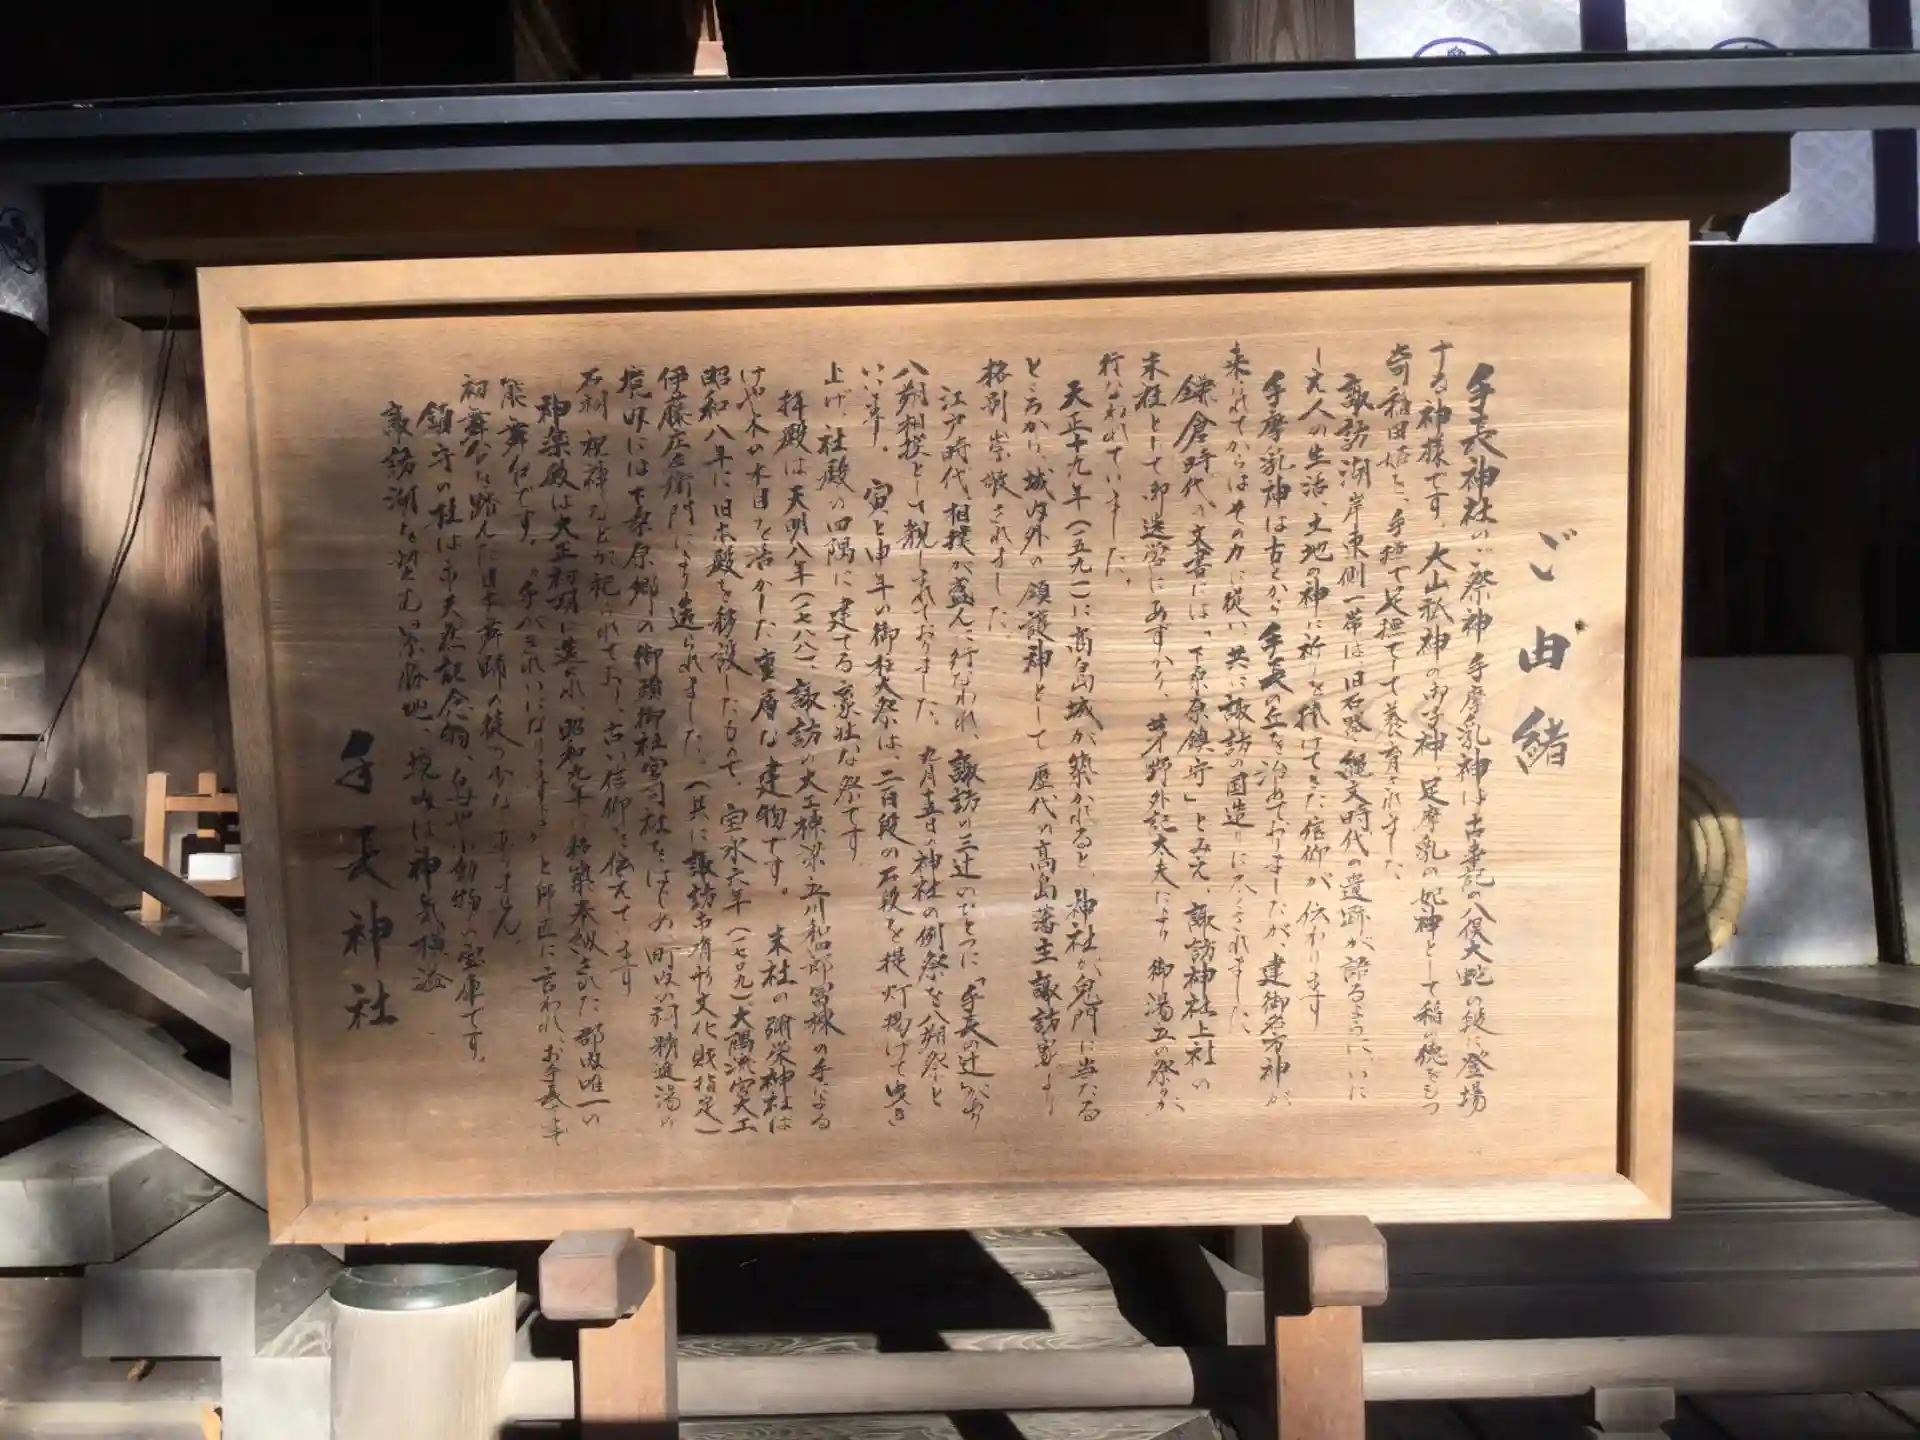 ご由緒
手長神社のご祭神 手摩乳神は古事記の八俣大蛇の段に登場
する神様です。大山祇神の御子神 足摩乳の妃神として稲の徳をもつ
奇稲田姫を、手撫で足撫でして養育されました
諏訪湖岸東側一帯は、旧石器、縄文時代の遺跡が語るように、いに
しえ人の生活、土地の神に祈りを捧げてきた信仰が伝わります
手摩乳神は古くから手長の丘を治めておりましたが、建御名方神が
来られてからはその力に従い共に諏訪の国造りに尽くされました
鎌倉時代の文書には「下桑原鎮守」とみえ、諏訪神社上社の
末社として御造営にあずかり、茅野外記太夫により御湯立の祭りが
行なわれていました。
天正十九年(一五九一)に高島城が築かれると、神社が鬼門に当たる
ところから、城内外の領護神として歴代の高島藩主諏訪家より
格別崇敬されました
江戸時代、相撲が盛んに行なわれ、諏訪の三辻のひとつに「手長の辻」があり
八朔相撲として親しまれておりました。九月十五日の神社の例祭を八朔祭と
いいます。寅と申年の御柱大祭は、二百段の石段を提灯掲げて曳き
上げ、社殿の四隅に建てる豪壮な祭です
拝殿は天明八年(一七八八)、諏訪の大工棟梁立川和四郎冨棟の手による
けやき木の木目を活かした重厚な建物です。末社の弥栄神社は
昭和八年に旧本殿を移設したもので、宝永六年(一七〇九)、大隅流宮大工
伊藤庄左衛門により造られました。(共に諏訪市有形文化財指定)
境内には下桑原郷の御頭御社宮司社をはじめ、町内の祠、精進湯の
石祠、祝神などが祀られており、古い信仰を伝えています
神楽殿は大正初頭に造られ、昭和九年に移築奉納された郡内唯一の
能舞台です。"手がきれいになりますよ"と師匠に言われ、お手長さまで
初舞台を踏んだ日本舞踊の徒も少なくありません。
鎮守の杜は市天然記念物、鳥や小動物の宝庫です。
諏訪湖を望む景勝地、境内は神気横溢
手長神社